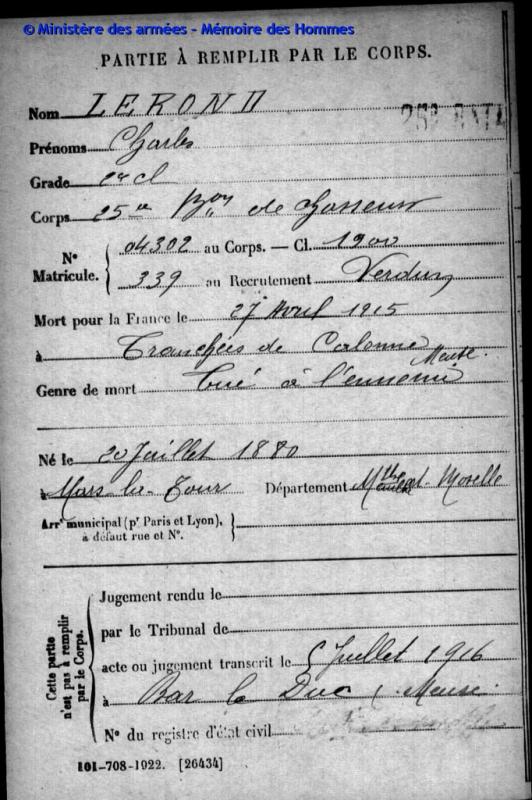 © Ministère des armées - Mémoire des Hommes
PARTIE À REMPLIR PAR LE CORPS.
Nom LEROND
Prénoms Charles
Grade 2e cl
Corps 25me Bon de chasseurs
N° Matricule. { 04302 au Corps. — Cl. 1900
339 au Recrutement Verdun
Mort pour la France le 27 Avril 1915
à Tranchées de Calonne Meuse.
Genre de mort tué à l'ennemi
Né le 20 Juillet 1880
à Mars-la-Tour Département Mthe et-Moselle
Arrt municipal (pr Paris et Lyon), à défaut rue et N°. }
Cette partie n'est pas à remplir par le Corps. {
Jugement rendu le
par le Tribunal de
acte ou jugement transcrit le 5 Juillet 1916
à Bar le Duc (Meuse.
N° du registre d'état civil
101-708-1922. [26434]